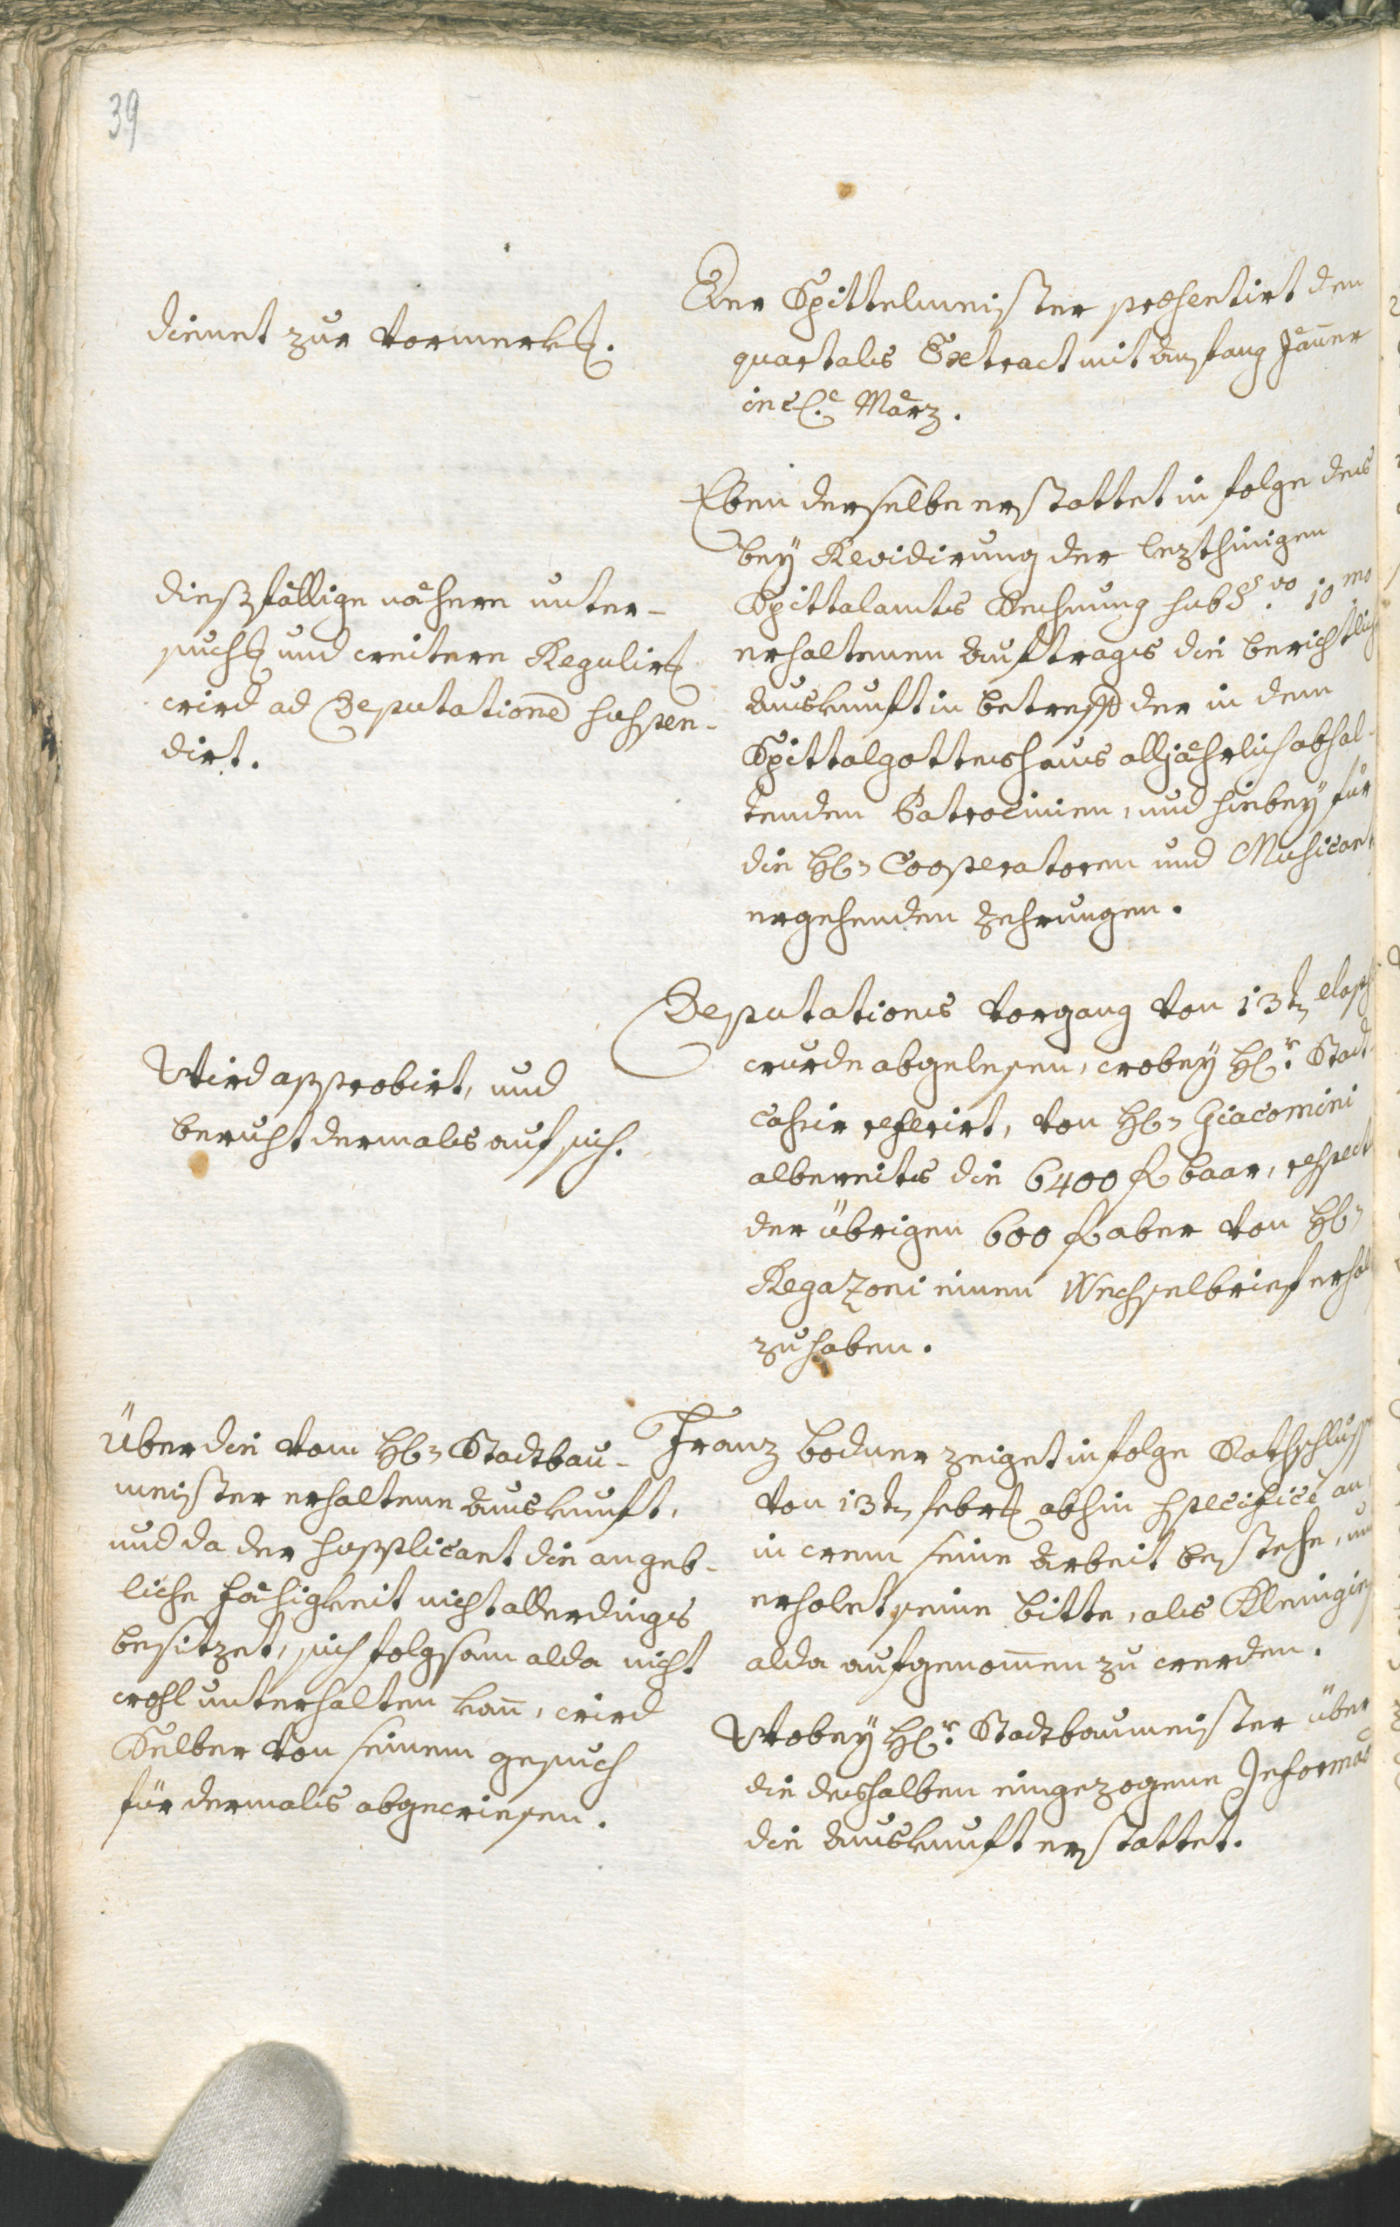 39
Der Spittelmeister præsentirt den
quartals Extract mit anfang Jäner
incl. März.
dienet zur vormerkh.
Eben derselbe erstattet in folge des
bey Revidirung der lezthinigen
Spittalamts Rechnung sub §vo 10mo
erhaltenen auftrags die berichtlich
auskunft in betreff der in dem
Spittalgotteshaus alljährlich abhal-
tenden Patrocinien, und hiebey für
die hh Cooperatoren und Musicant
ergehenden Zehrungen.
dießfällige nähere unter-
suchg und weitere Regulirg
wird ad Deputatione suspen-
dirt.
Deputations vorgang von 13tn elaps
wurde abgelesen, wobey Hr. Stadt
cassier referirt, von Hh Giacomini
albereits die 6400 f baar, respect
der übrigen 600 f aber von Hh
Regazoni einen Wechselbrief erhal
zu haben.
Wird approbirt, und
beruht dermals auf sich.
Franz bodner zeiget in folge Rathschluß
von 13tn febr abhin specificè an,
in weme seine Arbeit bestehe, und
erholet seine bitte, als Kleinigin
alda aufgenommen zu werden.
Wobey Hr. Stadtbaumeister über
die deshalben eingezogene Informat
die auskunft erstattet.
Über die vom Hh Stadtbau-
meister erhaltene auskunft,
und da der supplicant die angeb-
liche fähigkeit nicht allerdings
besitzet, sich folgsam alda nicht
wohl unterhalten kann, wird
Selber von seinem gesuch
für dermals abgewiesen.